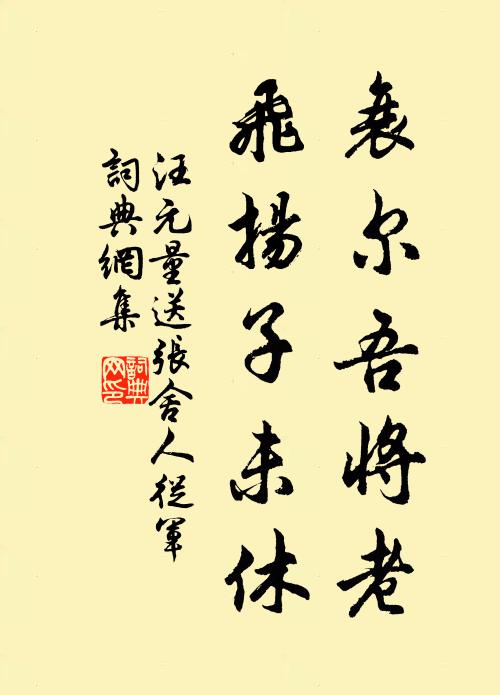 衰尔吾将老
飛揚子未休
汪元量送張舍人從軍
詞典網集
詞典网印